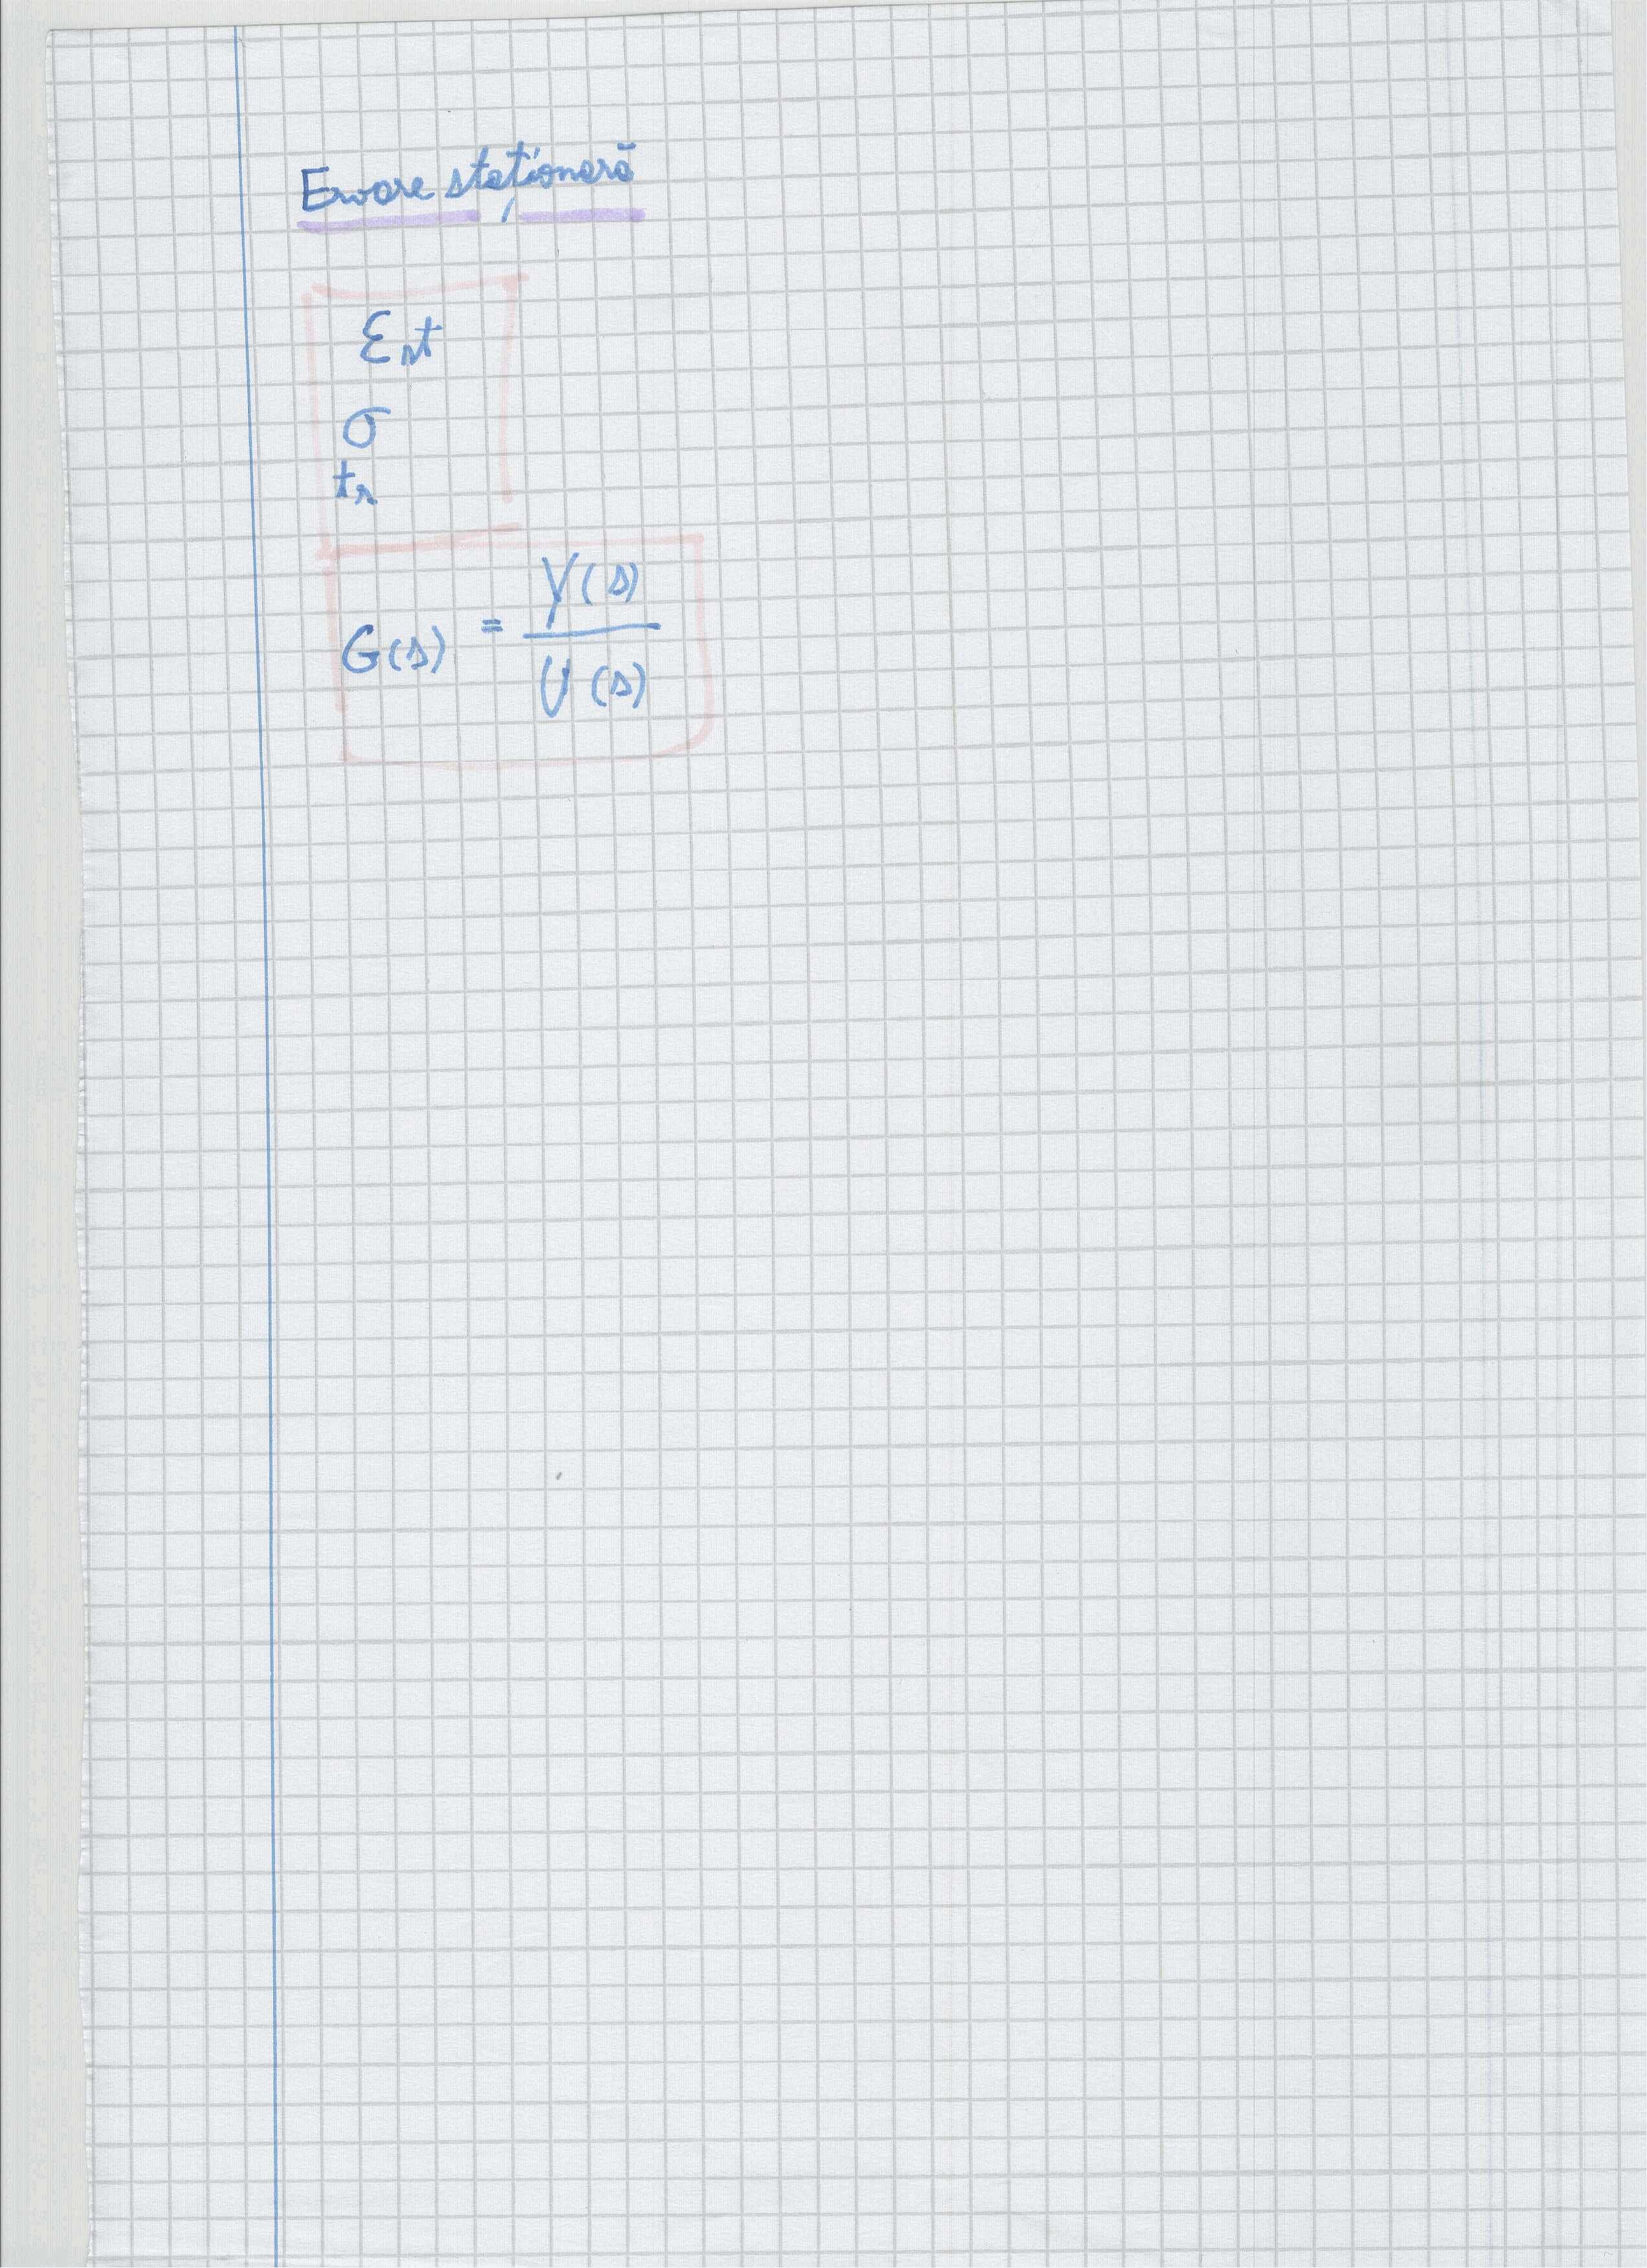 Eroare staționară
ε st
σ
tr
G(s) = Y(s) / U(s)